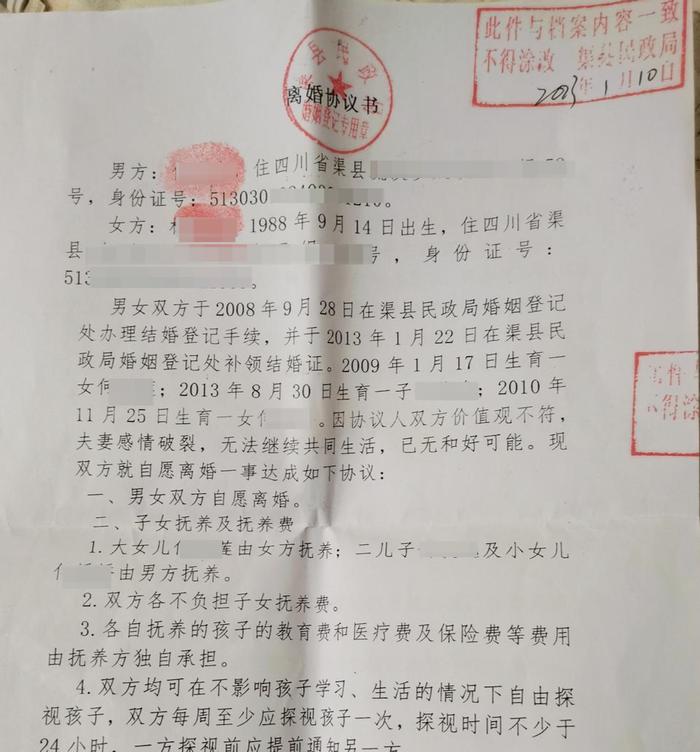 此件与档案内容一致
不得涂改 渠县民政局
年1月10日
离婚协议书
婚姻登记专用章
男方： 住四川省渠县
号，身份证号：513030
女方： 1988年9月14日出生，住四川省渠
县 号，身份证号：
513 。
男女双方于2008年9月28日在渠县民政局婚姻登记
处办理结婚登记手续，并于2013年1月22日在渠县民
政局婚姻登记处补领结婚证。2009年1月17日生育一
女何 ；2013年8月30日生育一子 ；2010年
11月25日生育一女 。因协议人双方价值观不符，
夫妻感情破裂，无法继续共同生活，已无和好可能。现
双方就自愿离婚一事达成如下协议：
一、男女双方自愿离婚。
二、子女抚养及抚养费
1.大女儿 莲由女方抚养；二儿子 及小女儿
由男方抚养。
2.双方各不负担子女抚养费。
3.各自抚养的孩子的教育费和医疗费及保险费等费用
由抚养方独自承担。
4.双方均可在不影响孩子学习、生活的情况下自由探
视孩子，双方每周至少应探视孩子一次，探视时间不少于
24小时，一方探视前应提前通知另一方
不得涂